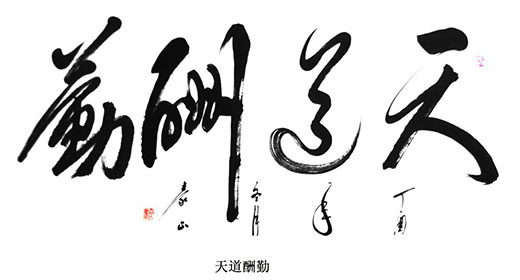 天道酬勤
丁酉年冬月泰山
天道酬勤